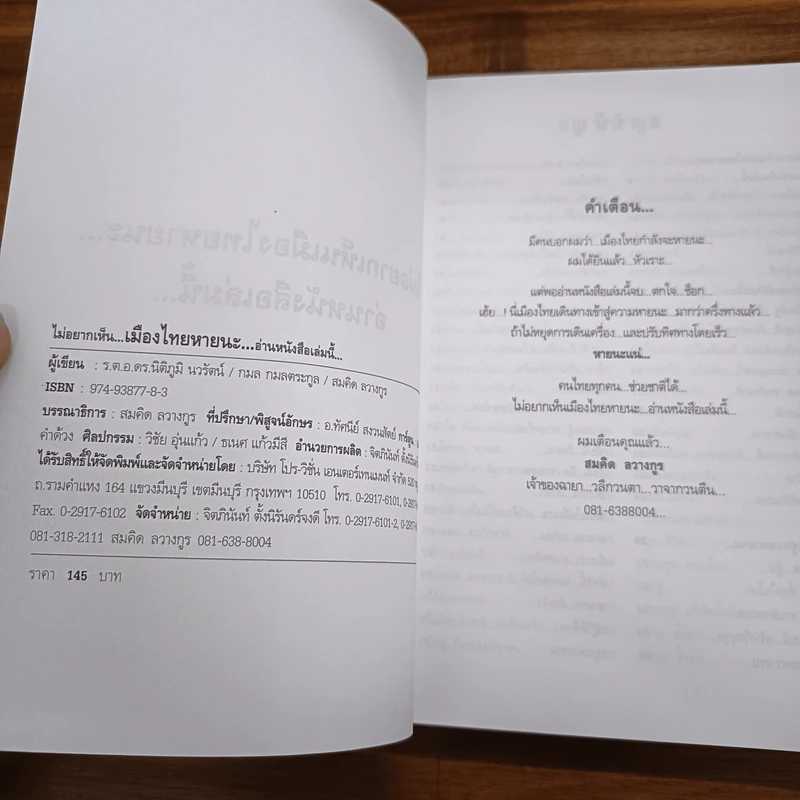 ไม่อยากเห็น...เมืองไทยหายนะ...อ่านหนังสือเล่มนี้...
ผู้เขียน : ร.ต.อ.ดร.นิติภูมิ นวรัตน์ / กมล กมลตระกูล / สมคิด ลวางกูร
ISBN : 974-93877-8-3
บรรณาธิการ : สมคิด ลวางกูร ที่ปรึกษา/พิสูจน์อักษร : อ.ทัศนีย์ สงวนสัตย์ การ์ตูน
คำด้วง ศิลปกรรม : วิชัย อุ่นแก้ว / ธเนศ แก้วมีสี อำนวยการผลิต : จิตภินันท์ ตั้งนิรันดร์
ได้รับสิทธิ์ให้จัดพิมพ์และจัดจำหน่ายโดย : บริษัท โปร-วิชั่น เอนเตอร์เทนเมนท์ จำกัด
ถ.รามคำแหง 164 แขวงมีนบุรี เขตมีนบุรี กรุงเทพฯ 10510 โทร. 0-2917-6101,
Fax. 0-2917-6102 จัดจำหน่าย : จิตภินันท์ ตั้งนิรันดร์จงดี โทร. 0-2917-6101-2,
081-318-2111 สมคิด ลวางกูร 081-638-8004
ราคา 145 บาท
คำเตือน...
มีคนบอกผมว่า...เมืองไทยกำลังจะหายนะ...
ผมได้ยินแล้ว...หัวเราะ...
แต่พออ่านหนังสือเล่มนี้จบ...ตกใจ...ช็อก...
เฮ้ย...! นี่เมืองไทยเดินทางเข้าสู่ความหายนะ...มากว่าครึ่งทางแล้ว...
ถ้าไม่หยุดการเดินเครื่อง...และปรับทิศทางโดยเร็ว...
หายนะแน่...
คนไทยทุกคน...ช่วยชาติได้...
ไม่อยากเห็นเมืองไทยหายนะ...อ่านหนังสือเล่มนี้...
ผมเตือนคุณแล้ว...
สมคิด ลวางกูร
เจ้าของฉายา...วลีกวนตา...วาจากวนตีน...
081-6388004...